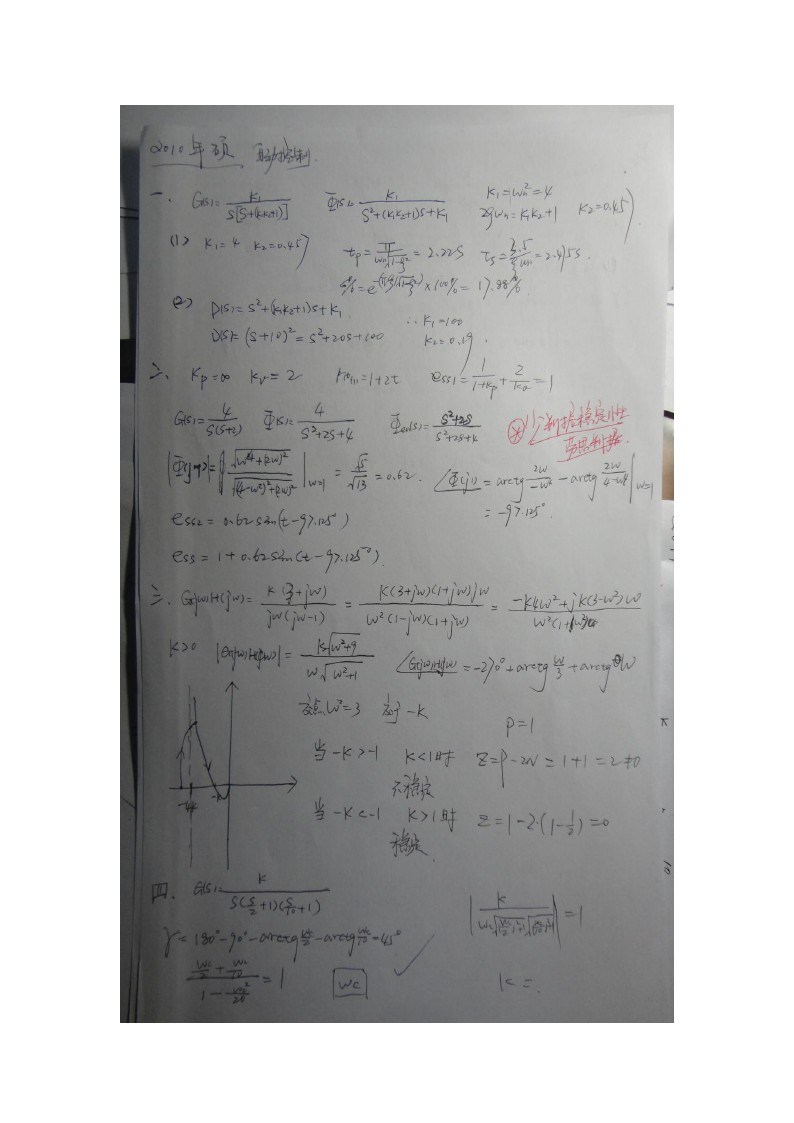 2010年硕 自动控制
一. G(s)=K₁/(s[s+(K₁K₂+1)]) Φ(s)=K₁/(s²+(K₁K₂+1)s+K₁) K₁=ωn²=4
2ξωn=K₁K₂+1 K₂=0.45
(1) K₁=4 K₂=0.45 tp=π/(ωn√(1-ξ²))=2.22s ts=3.5/(ξωn)=2.415s.
σ%=e^(-πξ/√(1-ξ²))×100%=17.88%
(2) D(s)=s²+(K₁K₂+1)s+K₁
D(s)=(s+10)²=s²+20s+100 ∴K₁=100
K₂=0.19.
二. Kp=∞ Kv=2 r(t)=1+2t ess1=1/(1+Kp)+2/Kv=1
G(s)=4/(s(s+2)) Φ(s)=4/(s²+2s+4) Φen(s)=(s²+2s)/(s²+2s+4)
※少判据稳定性
劳思判据.
|Φ(jω)|=√(ω⁴+(2ω)²)/√((4-ω²)²+(2ω)²)|ω=1 = √5/√13=0.62. ∠Φ(j1)=arctg 2ω/-ω² - arctg 2ω/(4-ω²)|ω=1
=-97.125°.
ess2=0.62sin(t-97.125°)
ess=1+0.62sin(t-97.125°).
三. G(jω)H(jω)=K(3+jω)/(jω(jω-1))=K(3+jω)(1+jω)jω/(ω²(1-jω)(1+jω))=(-K4ω²+jK(3-ω²)ω)/(ω²(1+ω²))
K>0 |G(jω)H(jω)|=K√(ω²+9)/(ω√(ω²+1)) ∠G(jω)H(jω)=-270°+arctg ω/3+arctg ω
交点ω²=3 交于-K P=1
当-K>-1 K<1时 Z=P-2N=1+1=2≠0
不稳定
-4K -K
当-K<-1 K>1时 Z=1-2·(1-1/2)=0
稳定.
四. G(s)=K/(s(s/2+1)(s/10+1)) |K/(ωc√((ωc/2)²+1)√((ωc/10)²+1))|=1
γ=180°-90°-arctg ωc/2-arctg ωc/10=45°
(ωc/2+ωc/10)/(1-ωc²/20)=1 ωc K=.